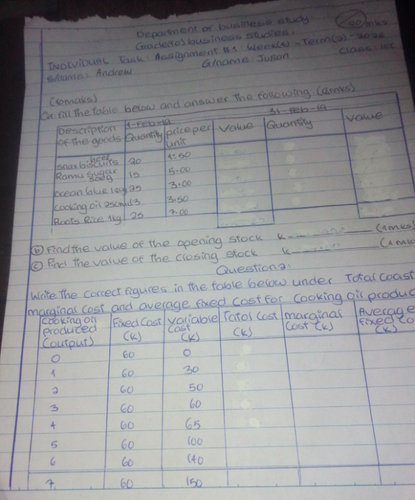 Department of business study.
Grade 10 business studies.
Individual Task: Assignment
Name: Andrew G/name: Juson Class: 10
(6mks)
fill the table below and answer the following. (4mks)
Description of the goods 1-Feb-19 Quantity price per unit Value 31-Feb-19 Quantity Value
beef biscuits 20 1.50
Ramu sugar 15 5.00
ocean blue 25 3.00
cooking oil 13 3.50
Roots Rice 1kg 25 7.00
(b) Find the value of the opening stock K (4mks)
(c) Find the value of the closing stock K (4mks
Question 2:
Write the correct figures in the table below under Total Coast
marginal cost and average fixed cost for cooking oil produc
Cooking oil produced (output) Fixed Cost (K) Variable Cost (K) Total Cost (K) marginal Cost (K) Average fixed co (K)
0 60 0
1 60 30
2 60 50
3 60 60
4 60 65
5 60 100
6 60 140
7 60 150